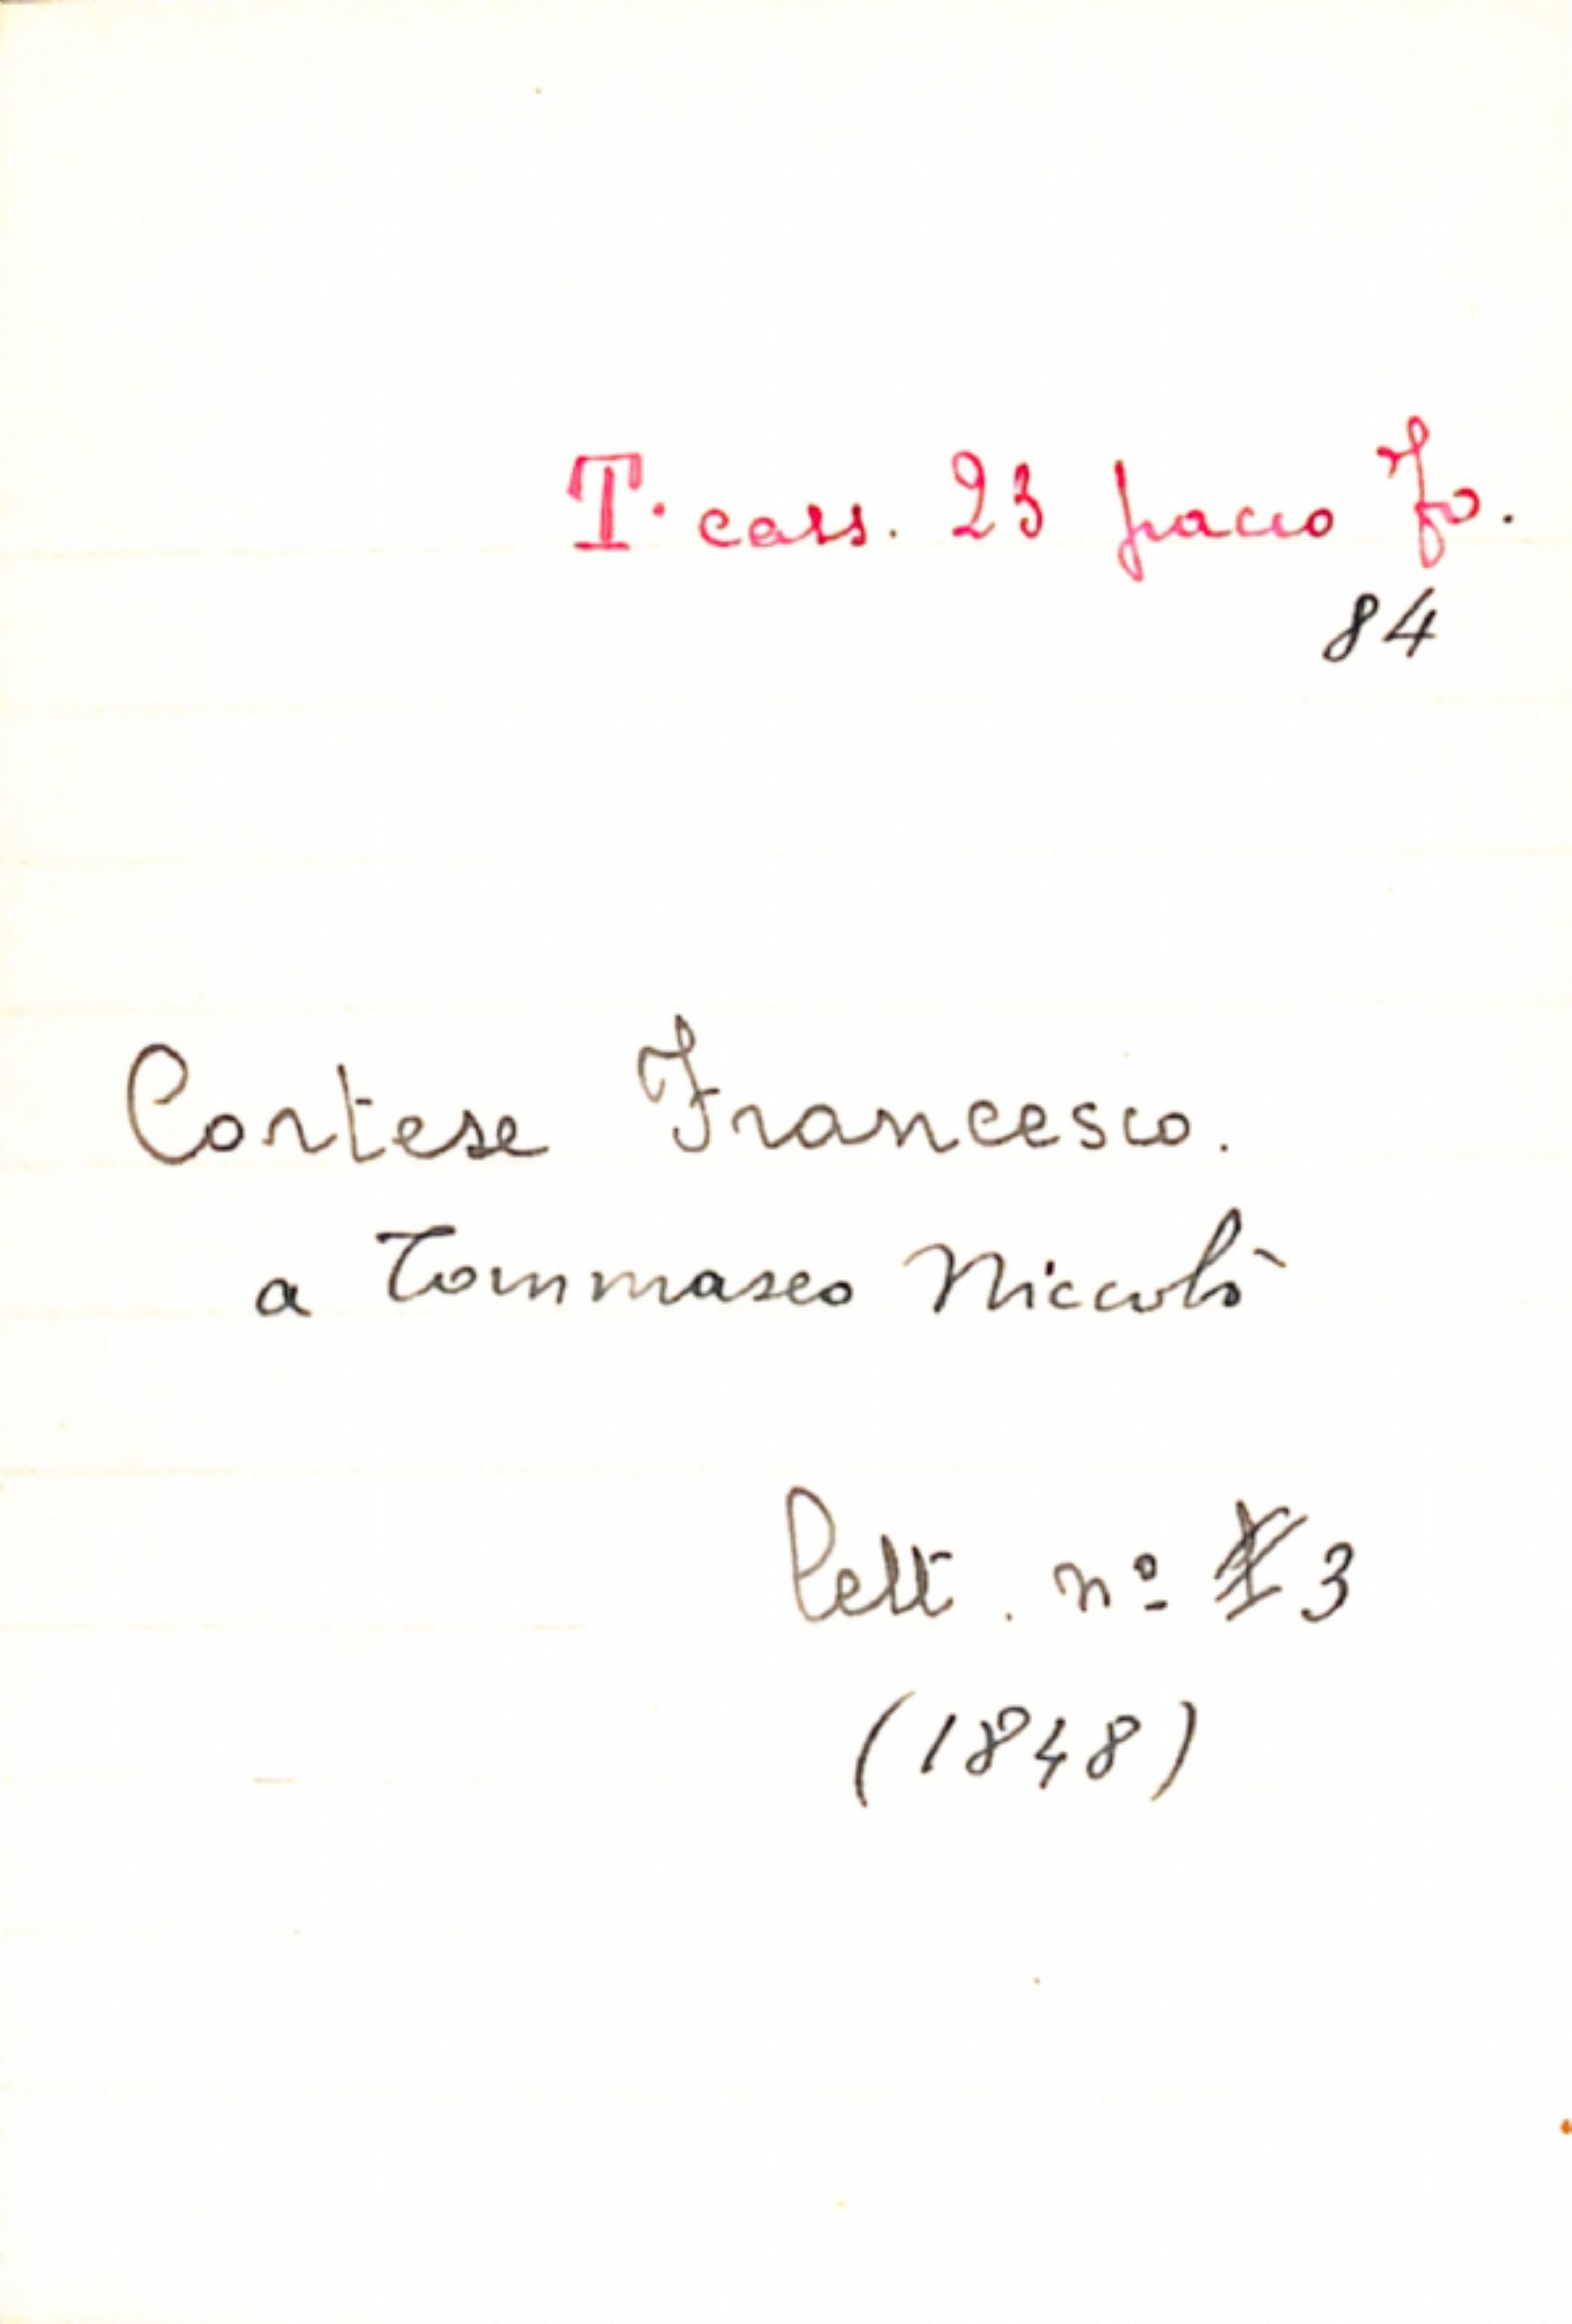 T. cass. 23 pacco Fo.
84
Cortese Francesco.
a Tommaseo Niccolò
Lett. nº 3
(1848)